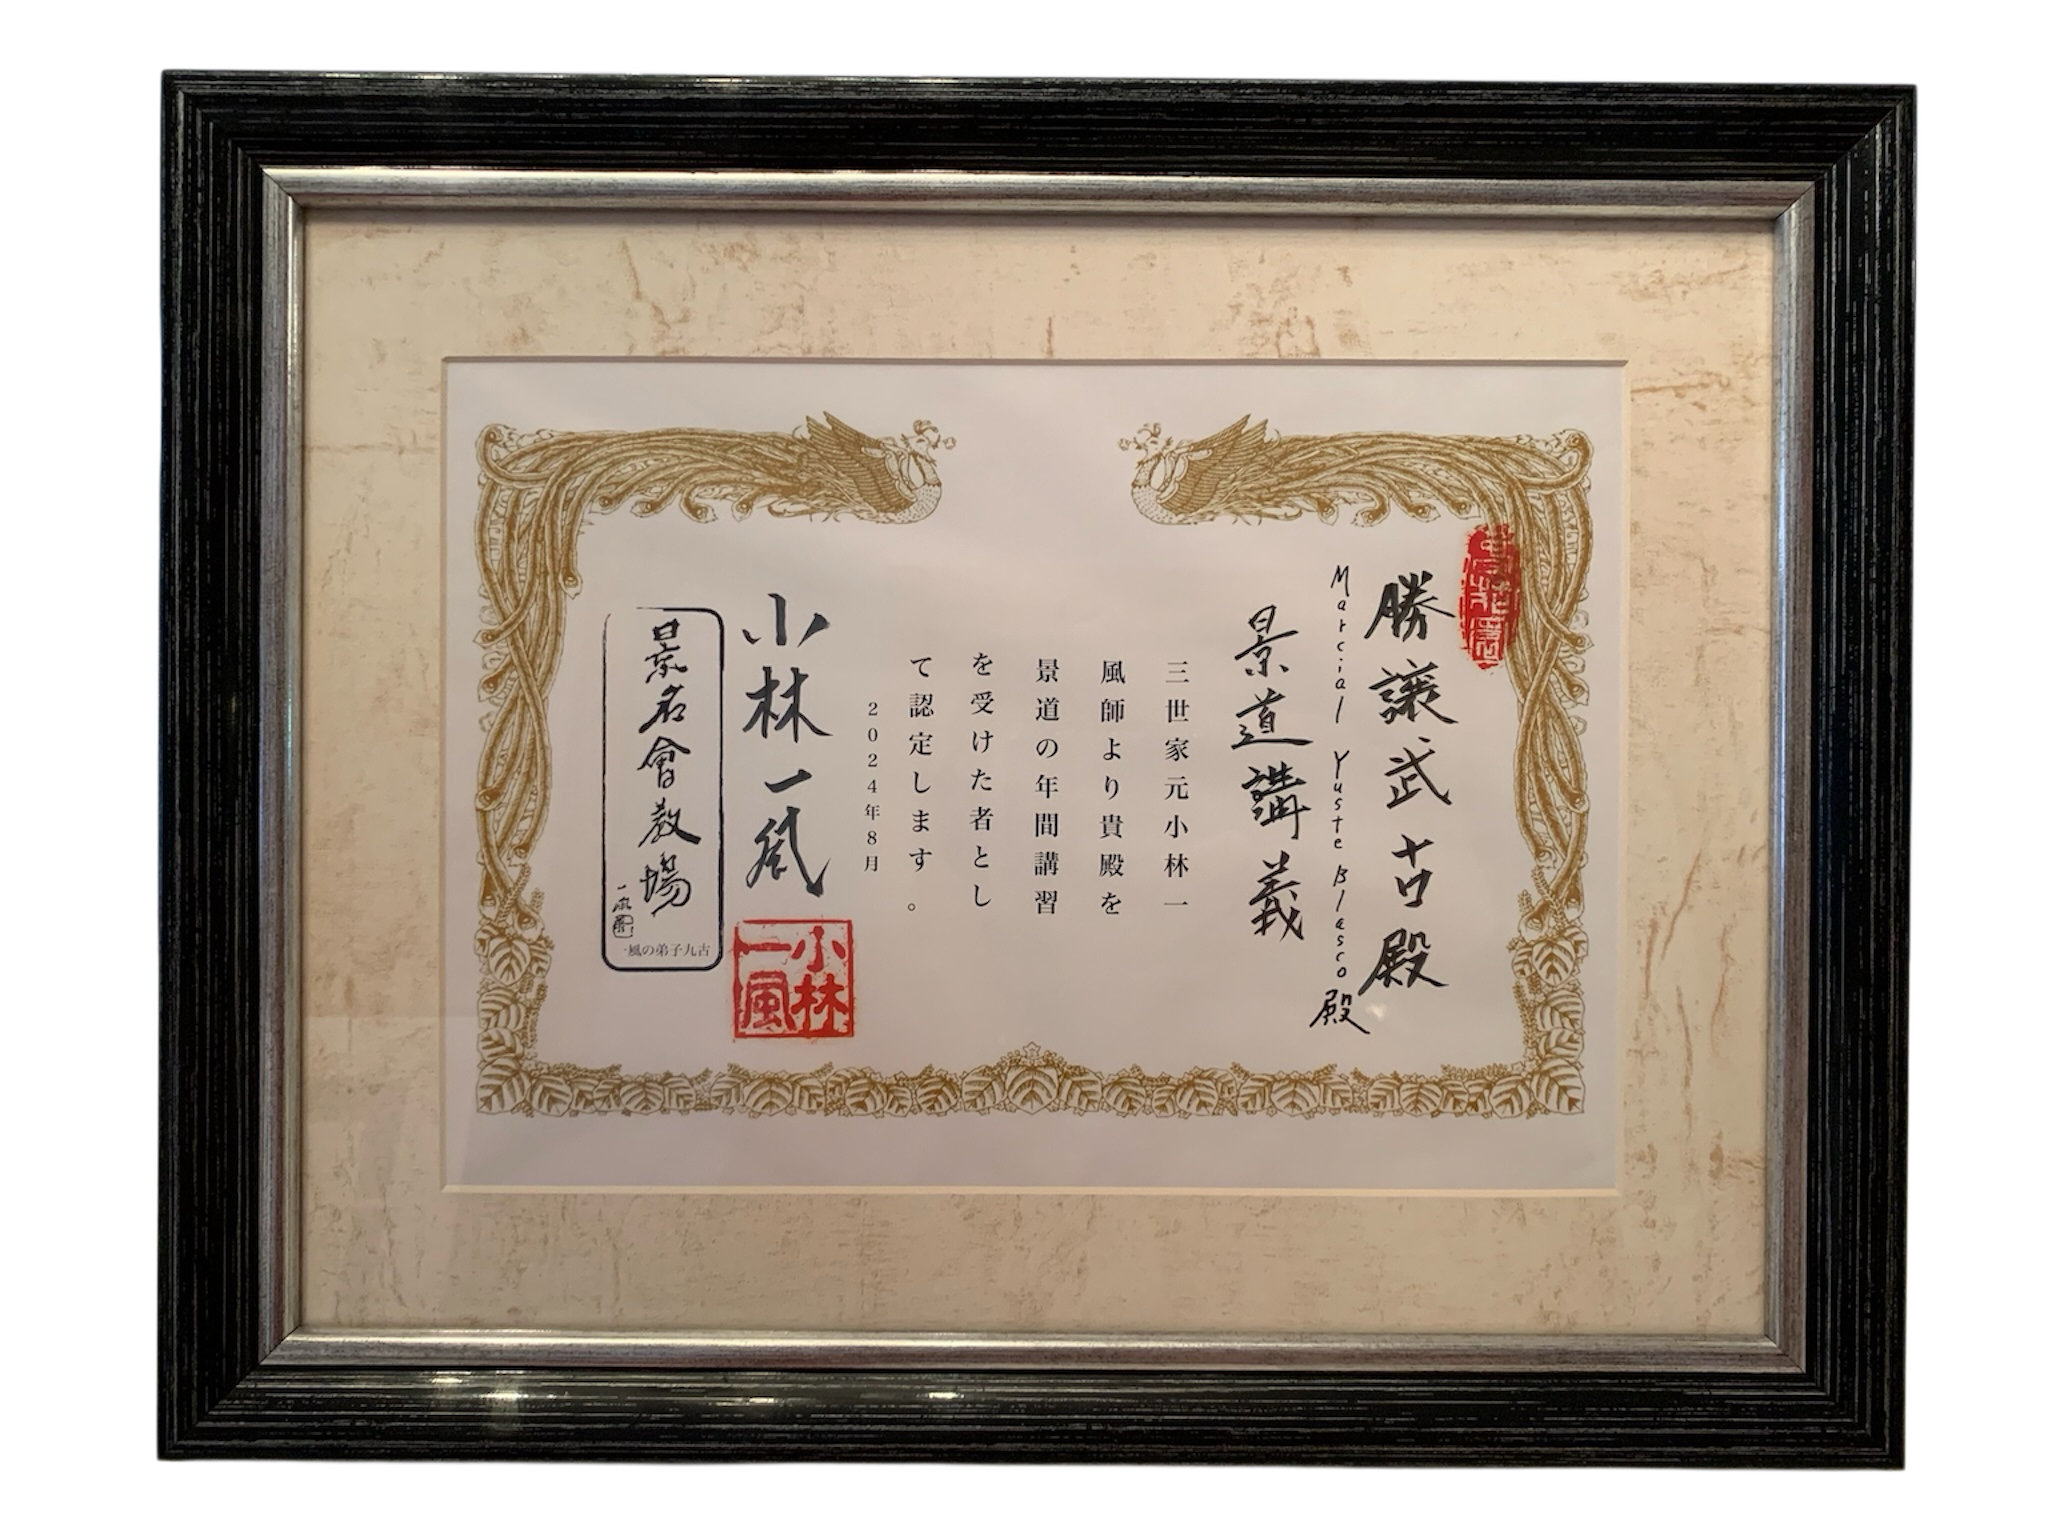 勝譲武古殿
Marcial Yuste Blasco 殿
景道講義
三世家元小林一
風師より貴殿を
景道の年間講習
を受けた者とし
て認定します。
2024年8月
小林一風
小林
一風
景名會教場
一風の弟子九古